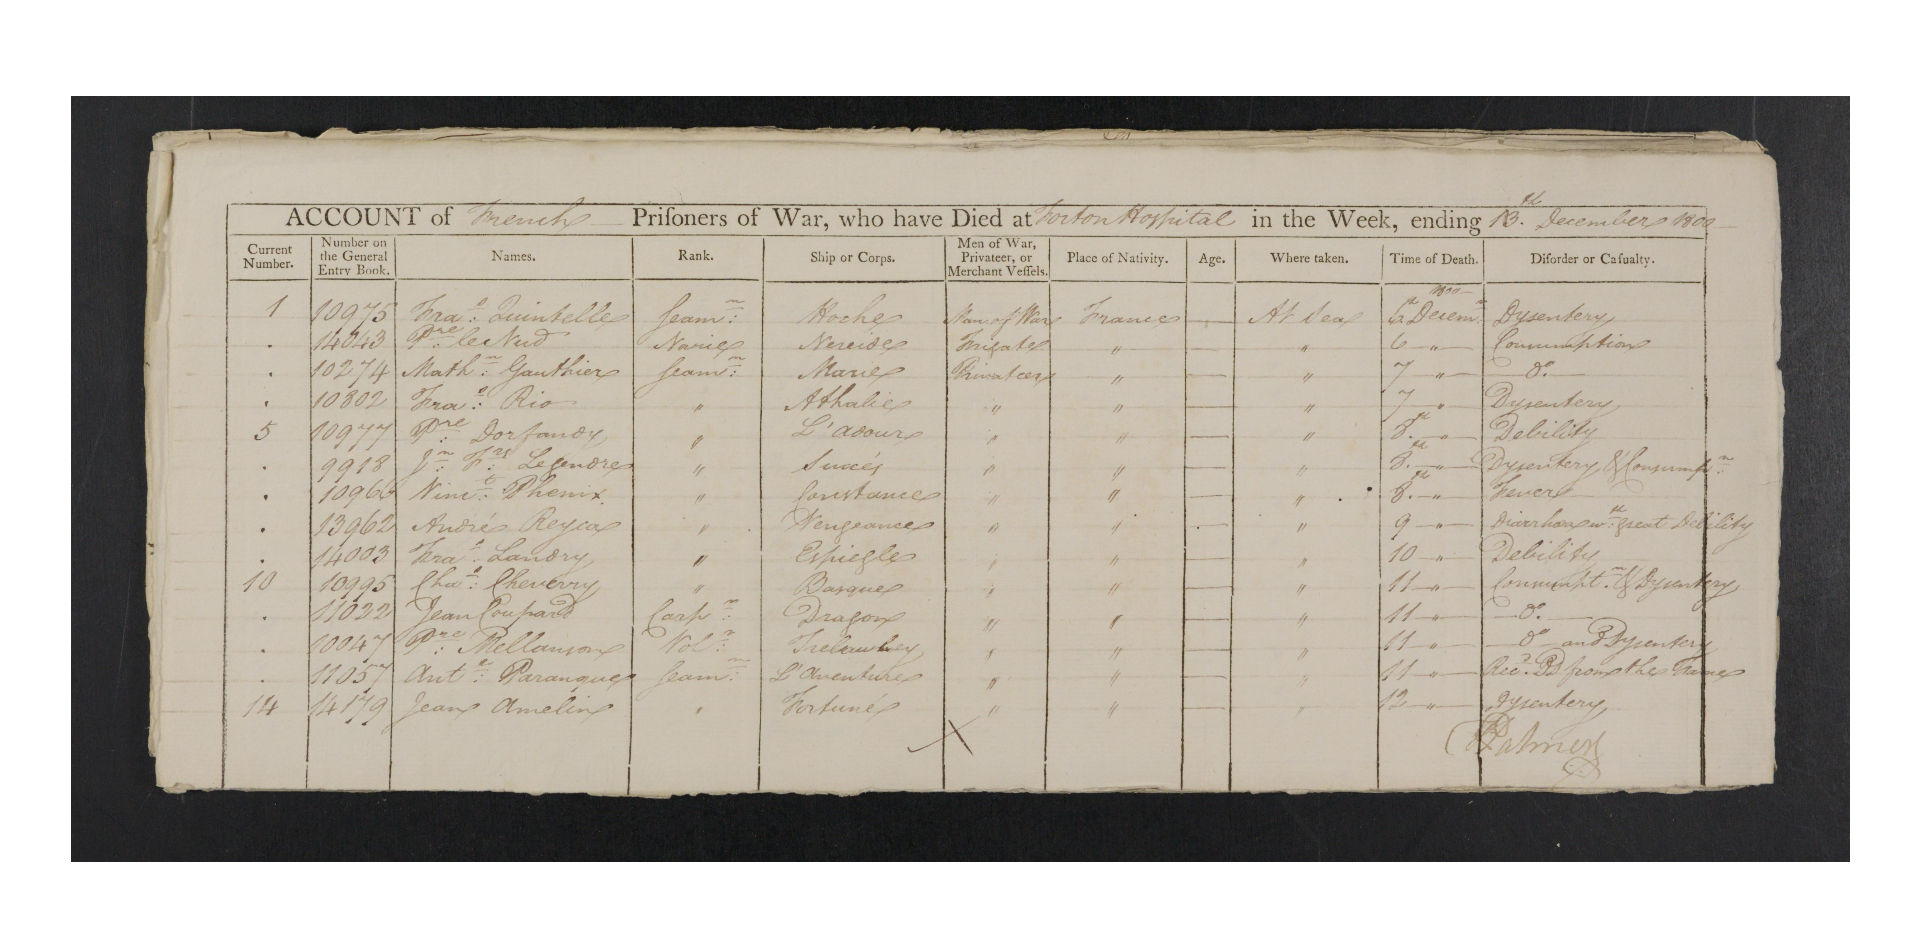 ACCOUNT of French Priſoners of War, who have Died at Forton Hospital in the Week, ending 13.th December 1800
Current Number. Number on the General Entry Book. Names. Rank. Ship or Corps. Men of War, Privateer, or Merchant Veſſels. Place of Nativity. Age. Where taken. Time of Death. Diſorder or Caſualty.
1 10975 Fra.s Quintelle Seam.n Hoche Man of War France — At Sea 6th Decem.r 1800 Dysentery
. 14043 P.re le Nud Nereide Frigate " — " 6 " Consumption
. 10274 Math.n Gauthier Seam.n Marie Privateer " — " 7 " do.
. 10802 Fra.s Rio " Athalie " " — " 7 " Dysentery
5 10977 P.re Dorfandy " L'adour " " — " 8.th " Debility
. 9918 J.n F.rs Legendre " Succés " " — " 8.th " Dysentery & Consump.n
. 10966 Phenix " Constance " " — " 8.th " Fever
. 13962 André Reyca " Vengeance " " — " 9 " Diarrhœa w.th great Debility
. 14003 Fra.s Landry " Espiegle " " — " 10 " Debility
10 10995 Cha.s Cheverry " Basque " " — " 11 " Consumpt.n & Dysentery
. 11022 Jean Coupard Carp.n Dragon " " — " 11 " do.
. 10047 P.re Mellanson Vol.r Trelawney " " — " 11 " do and Dysentery
. 11057 Ant.e Paranque Seam.n L'aventure " " — " 11 " Rec.d Dd from the Frame
14 14179 Jean Amelin " Fortuné " " — " 12 " Dysentery
Palmer